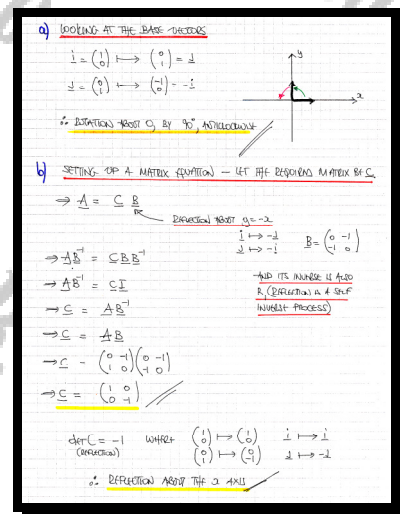 a) LOOKING AT THE BASE VECTORS
i = (1 0) ⟼ (0 1) = j
j = (0 1) ⟼ (-1 0) = -i
y
x
∴ ROTATION ABOUT O, BY 90°, ANTICLOCKWISE
b) SETTING UP A MATRIX EQUATION — LET THE REQUIRED MATRIX BE C.
⇒ A = C B
REFLECTION ABOUT y=-x
i ⟼ -j
j ⟼ -i
B = (0 -1
-1 0)
⇒ AB⁻¹ = CBB⁻¹
⇒ AB⁻¹ = CI
AND ITS INVERSE IS ALSO
B, (REFLECTION IS A SELF
INVERSE PROCESS)
⇒ C = AB⁻¹
⇒ C = AB
⇒ C = (0 -1
1 0)(0 -1
-1 0)
⇒ C = (1 0
0 -1)
det C = -1 WHERE (1 0) ⟼ (1 0) i ⟼ i
(REFLECTION) (0 1) ⟼ (0 -1) j ⟼ -j
∴ REFLECTION ABOUT THE x AXIS